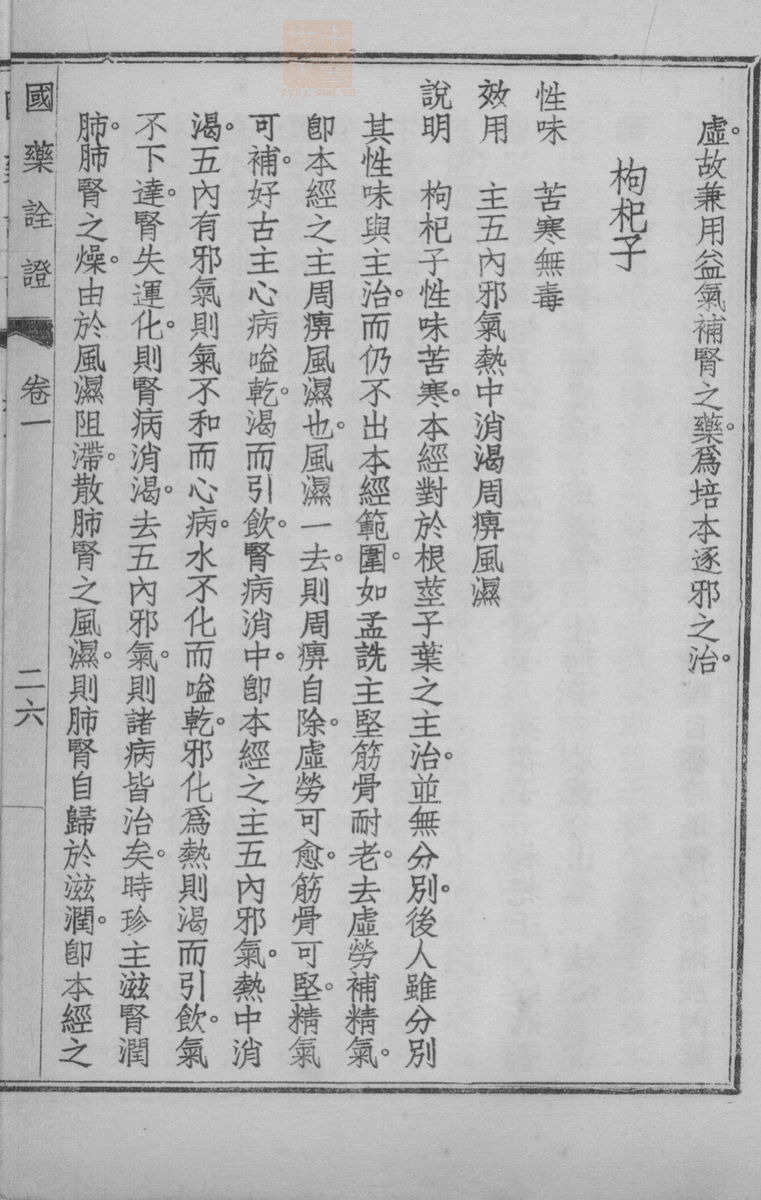 虛。故兼用益氣補腎之藥。爲培本逐邪之治。
枸杞子
性味　苦寒無毒
效用　主五內邪氣熱中消渴周痹風濕
說明　枸杞子性味苦寒。本經對於根莖子葉之主治。並無分別。後人雖分別
其性味與主治。而仍不出本經範圍。如孟詵主堅筋骨耐老。去虛勞補精氣。
卽本經之主周痹風濕也。風濕一去。則周痹自除。虛勞可愈。筋骨可堅。精氣
可補。好古主心病嗌乾。渴而引飲。腎病消中。卽本經之主五內邪氣。熱中消
渴。五內有邪氣則氣不和而心病。水不化而嗌乾。邪化爲熱則渴而引飲。氣
不下達。腎失運化。則腎病消渴。去五內邪氣。則諸病皆治矣。時珍主滋腎潤
肺。肺腎之燥。由於風濕阻滯。散肺腎之風濕。則肺腎自歸於滋潤。卽本經之
國藥詮證　卷一　二六